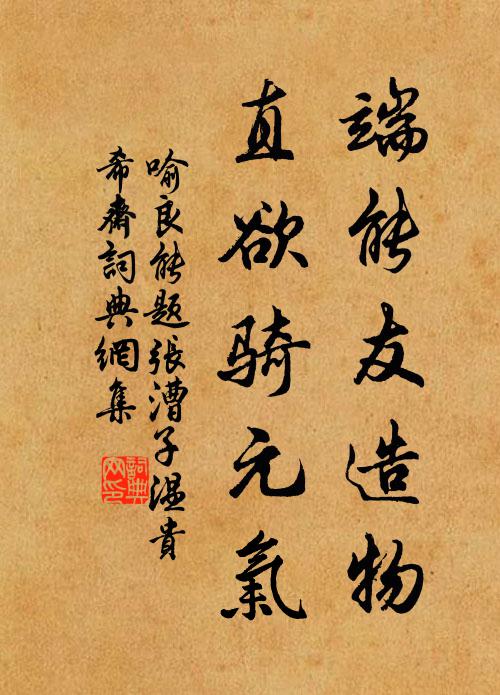 端能友造物
直欲骑元氣
喻良能题張漕子温貴
希齋詞典網集
詞典网印